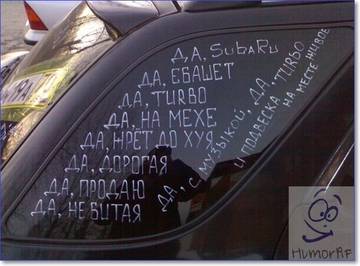 ДА, SUBARU
ДА, ЕБАШЕТ
ДА, TURBO
ДА, НА МЕХЕ
ДА, ЖРЁТ ДО ХУЯ
ДА, ДОРОГАЯ
ДА, ПРОДАЮ
ДА, НЕ БИТАЯ
ДА, С МУЗЫКОЙ, ДА, TURBO
И ПОДВЕСКА НА МЕСТЕ ЖИВОЕ
HumorRF